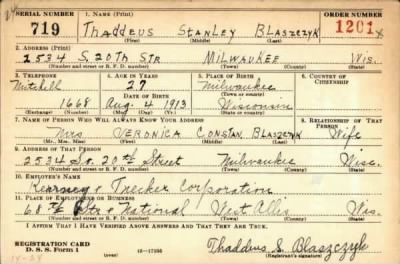 SERIAL NUMBER 1. NAME (Print) ORDER NUMBER
719 Thaddeus Stanley Blaszczyk 1201
(First) (Middle) (Last)
2. ADDRESS (Print)
2534 S. 20th Str Milwaukee Wis.
(Number and street or R. F. D. number) (Town) (County) (State)
3. TELEPHONE 4. AGE IN YEARS 5. PLACE OF BIRTH 6. COUNTRY OF CITIZENSHIP
Mitchell 27 Milwaukee
DATE OF BIRTH (Town or county)
1668 Aug. 4 1913 Wisconsin
(Exchange) (Number) (Mo.) (Day) (Yr.) (State or country)
7. NAME OF PERSON WHO WILL ALWAYS KNOW YOUR ADDRESS 8. RELATIONSHIP OF THAT PERSON
Mrs Veronica Constan. Blaszczyk Wife
(Mr., Mrs., Miss) (First) (Middle) (Last)
9. ADDRESS OF THAT PERSON
2534 So. 20th Street Milwaukee Wisc.
(Number and street or R. F. D. number) (Town) (County) (State)
10. EMPLOYER'S NAME
Kearney & Trecker Corporation
11. PLACE OF EMPLOYMENT OR BUSINESS
68th Str & National West Allis Wis.
(Number and street or R. F. D. number) (Town) (County) (State)
I AFFIRM THAT I HAVE VERIFIED ABOVE ANSWERS AND THAT THEY ARE TRUE.
REGISTRATION CARD
D. S. S. Form 1 (over) 16—17105 Thaddeus S Blaszczyk
(Registrant's signature)